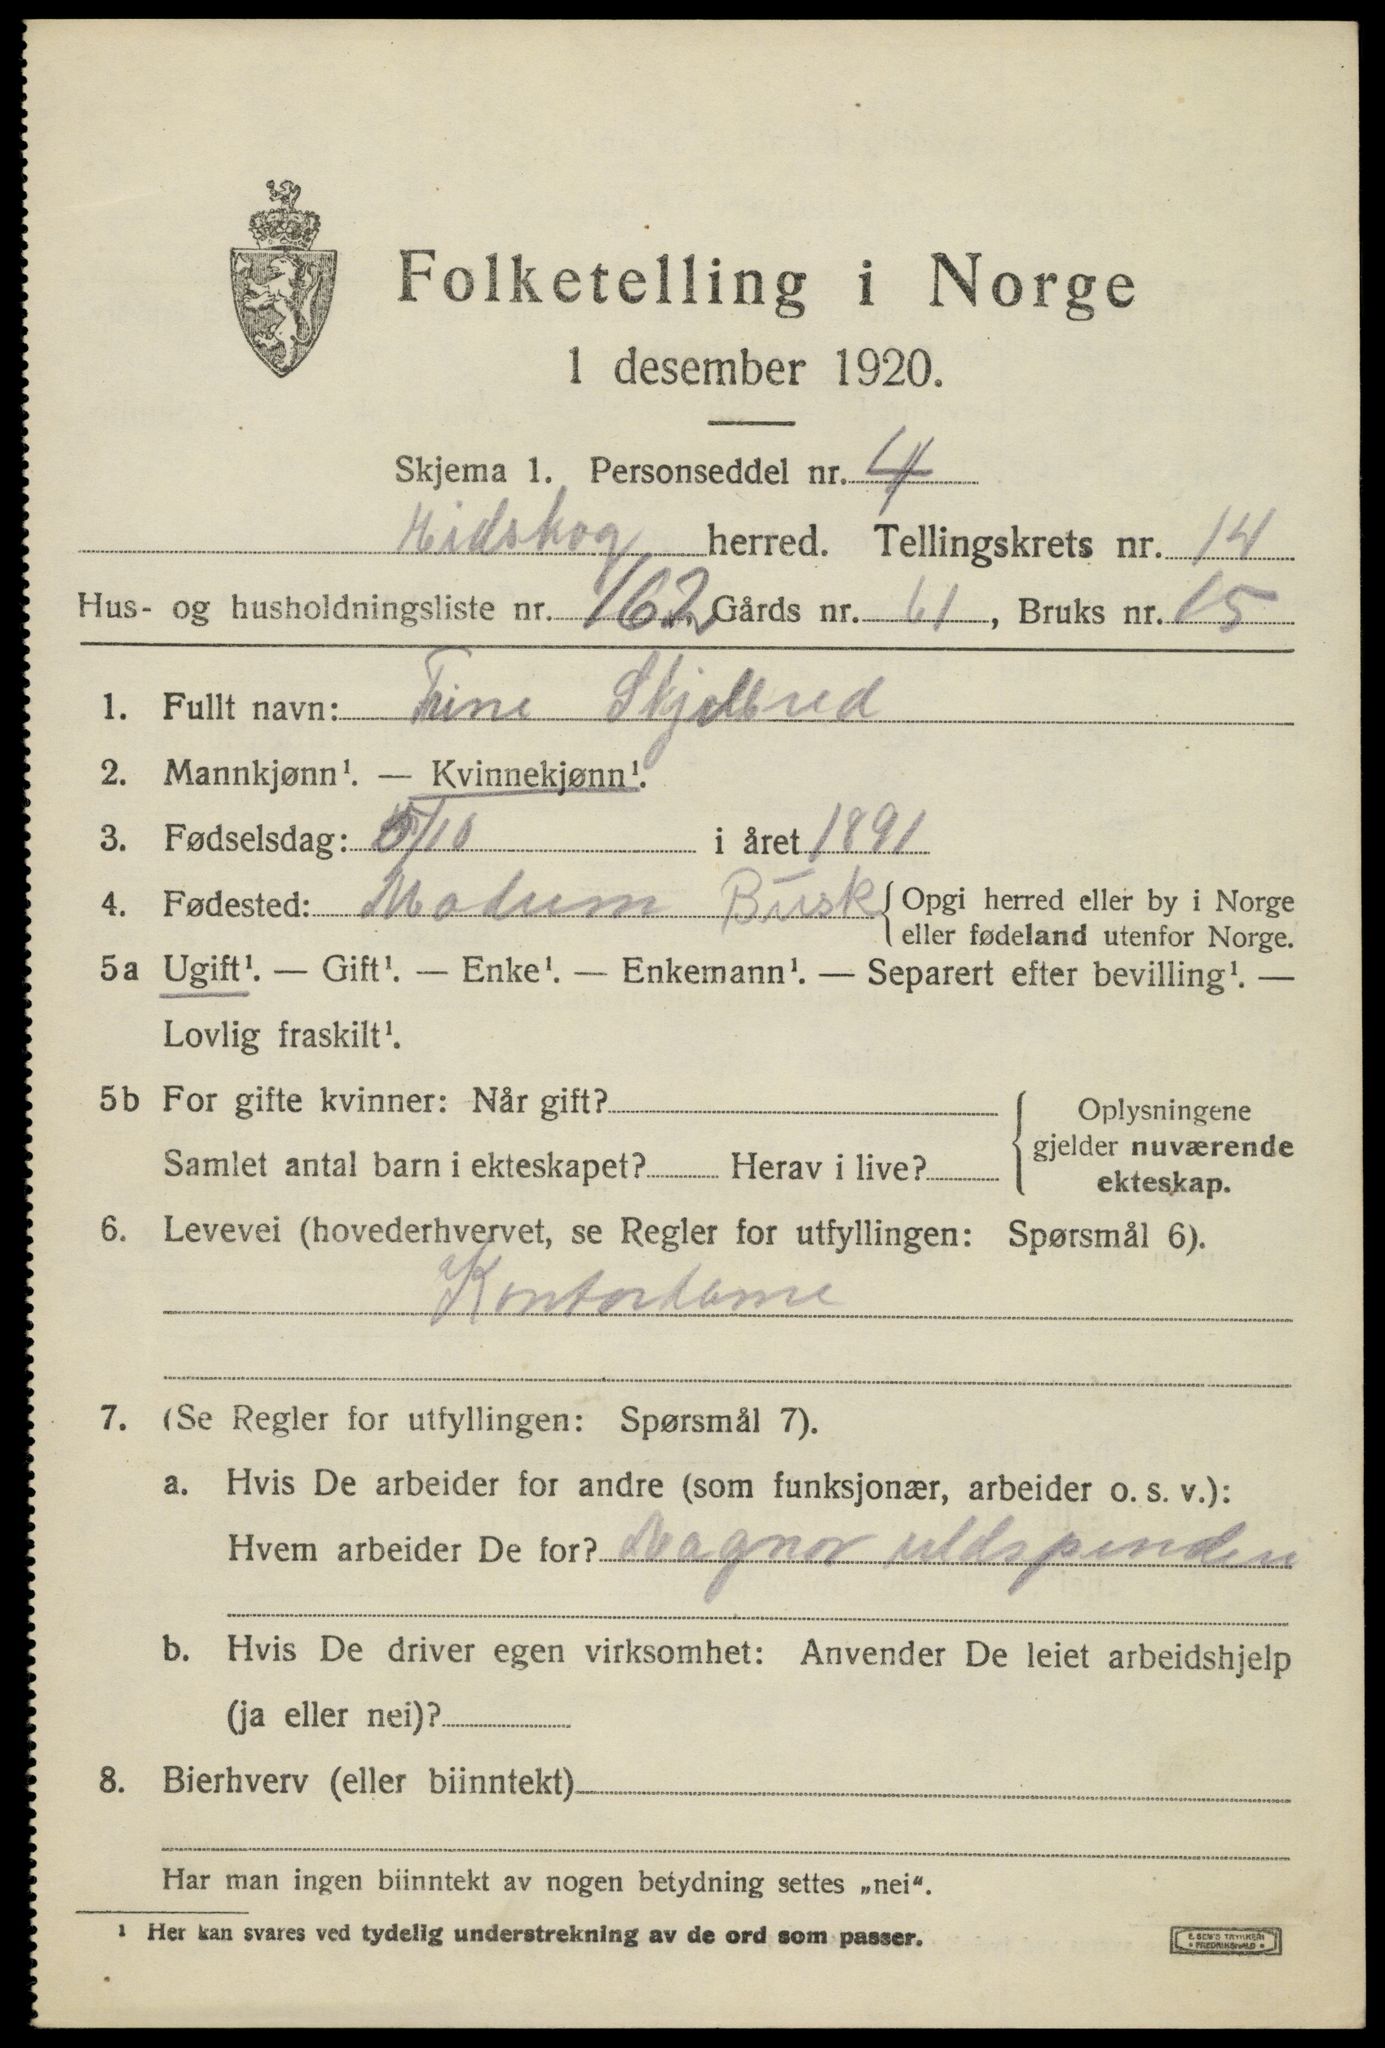 Folketelling i Norge
1 desember 1920.
Skjema 1. Personseddel nr. 4
Eidskog herred. Tellingskrets nr. 14
Hus- og husholdningsliste nr. 162 Gårds nr. 61, Bruks nr. 15
1. Fullt navn: Trine Skjelbred
2. Mannkjønn¹. — Kvinnekjønn¹.
3. Fødselsdag: 5/10 i året 1891
4. Fødested: Modum Busk { Opgi herred eller by i Norge
eller fødeland utenfor Norge.
5a Ugift¹. — Gift¹. — Enke¹. — Enkemann¹. — Separert efter bevilling¹. —
Lovlig fraskilt¹.
5b For gifte kvinner: Når gift?
Samlet antal barn i ekteskapet? Herav i live?
Oplysningene
gjelder nuværende
ekteskap.
6. Levevei (hovederhvervet, se Regler for utfyllingen: Spørsmål 6).
Kontordame
7. (Se Regler for utfyllingen: Spørsmål 7).
a. Hvis De arbeider for andre (som funksjonær, arbeider o. s. v.):
Hvem arbeider De for? Magnor uldspinderi
b. Hvis De driver egen virksomhet: Anvender De leiet arbeidshjelp
(ja eller nei)?
8. Bierhverv (eller biinntekt)
Har man ingen biinntekt av nogen betydning settes „nei“.
¹ Her kan svares ved tydelig understrekning av de ord som passer.
E. SEM'S TRYKKERI
• FREDRIKSHALD •